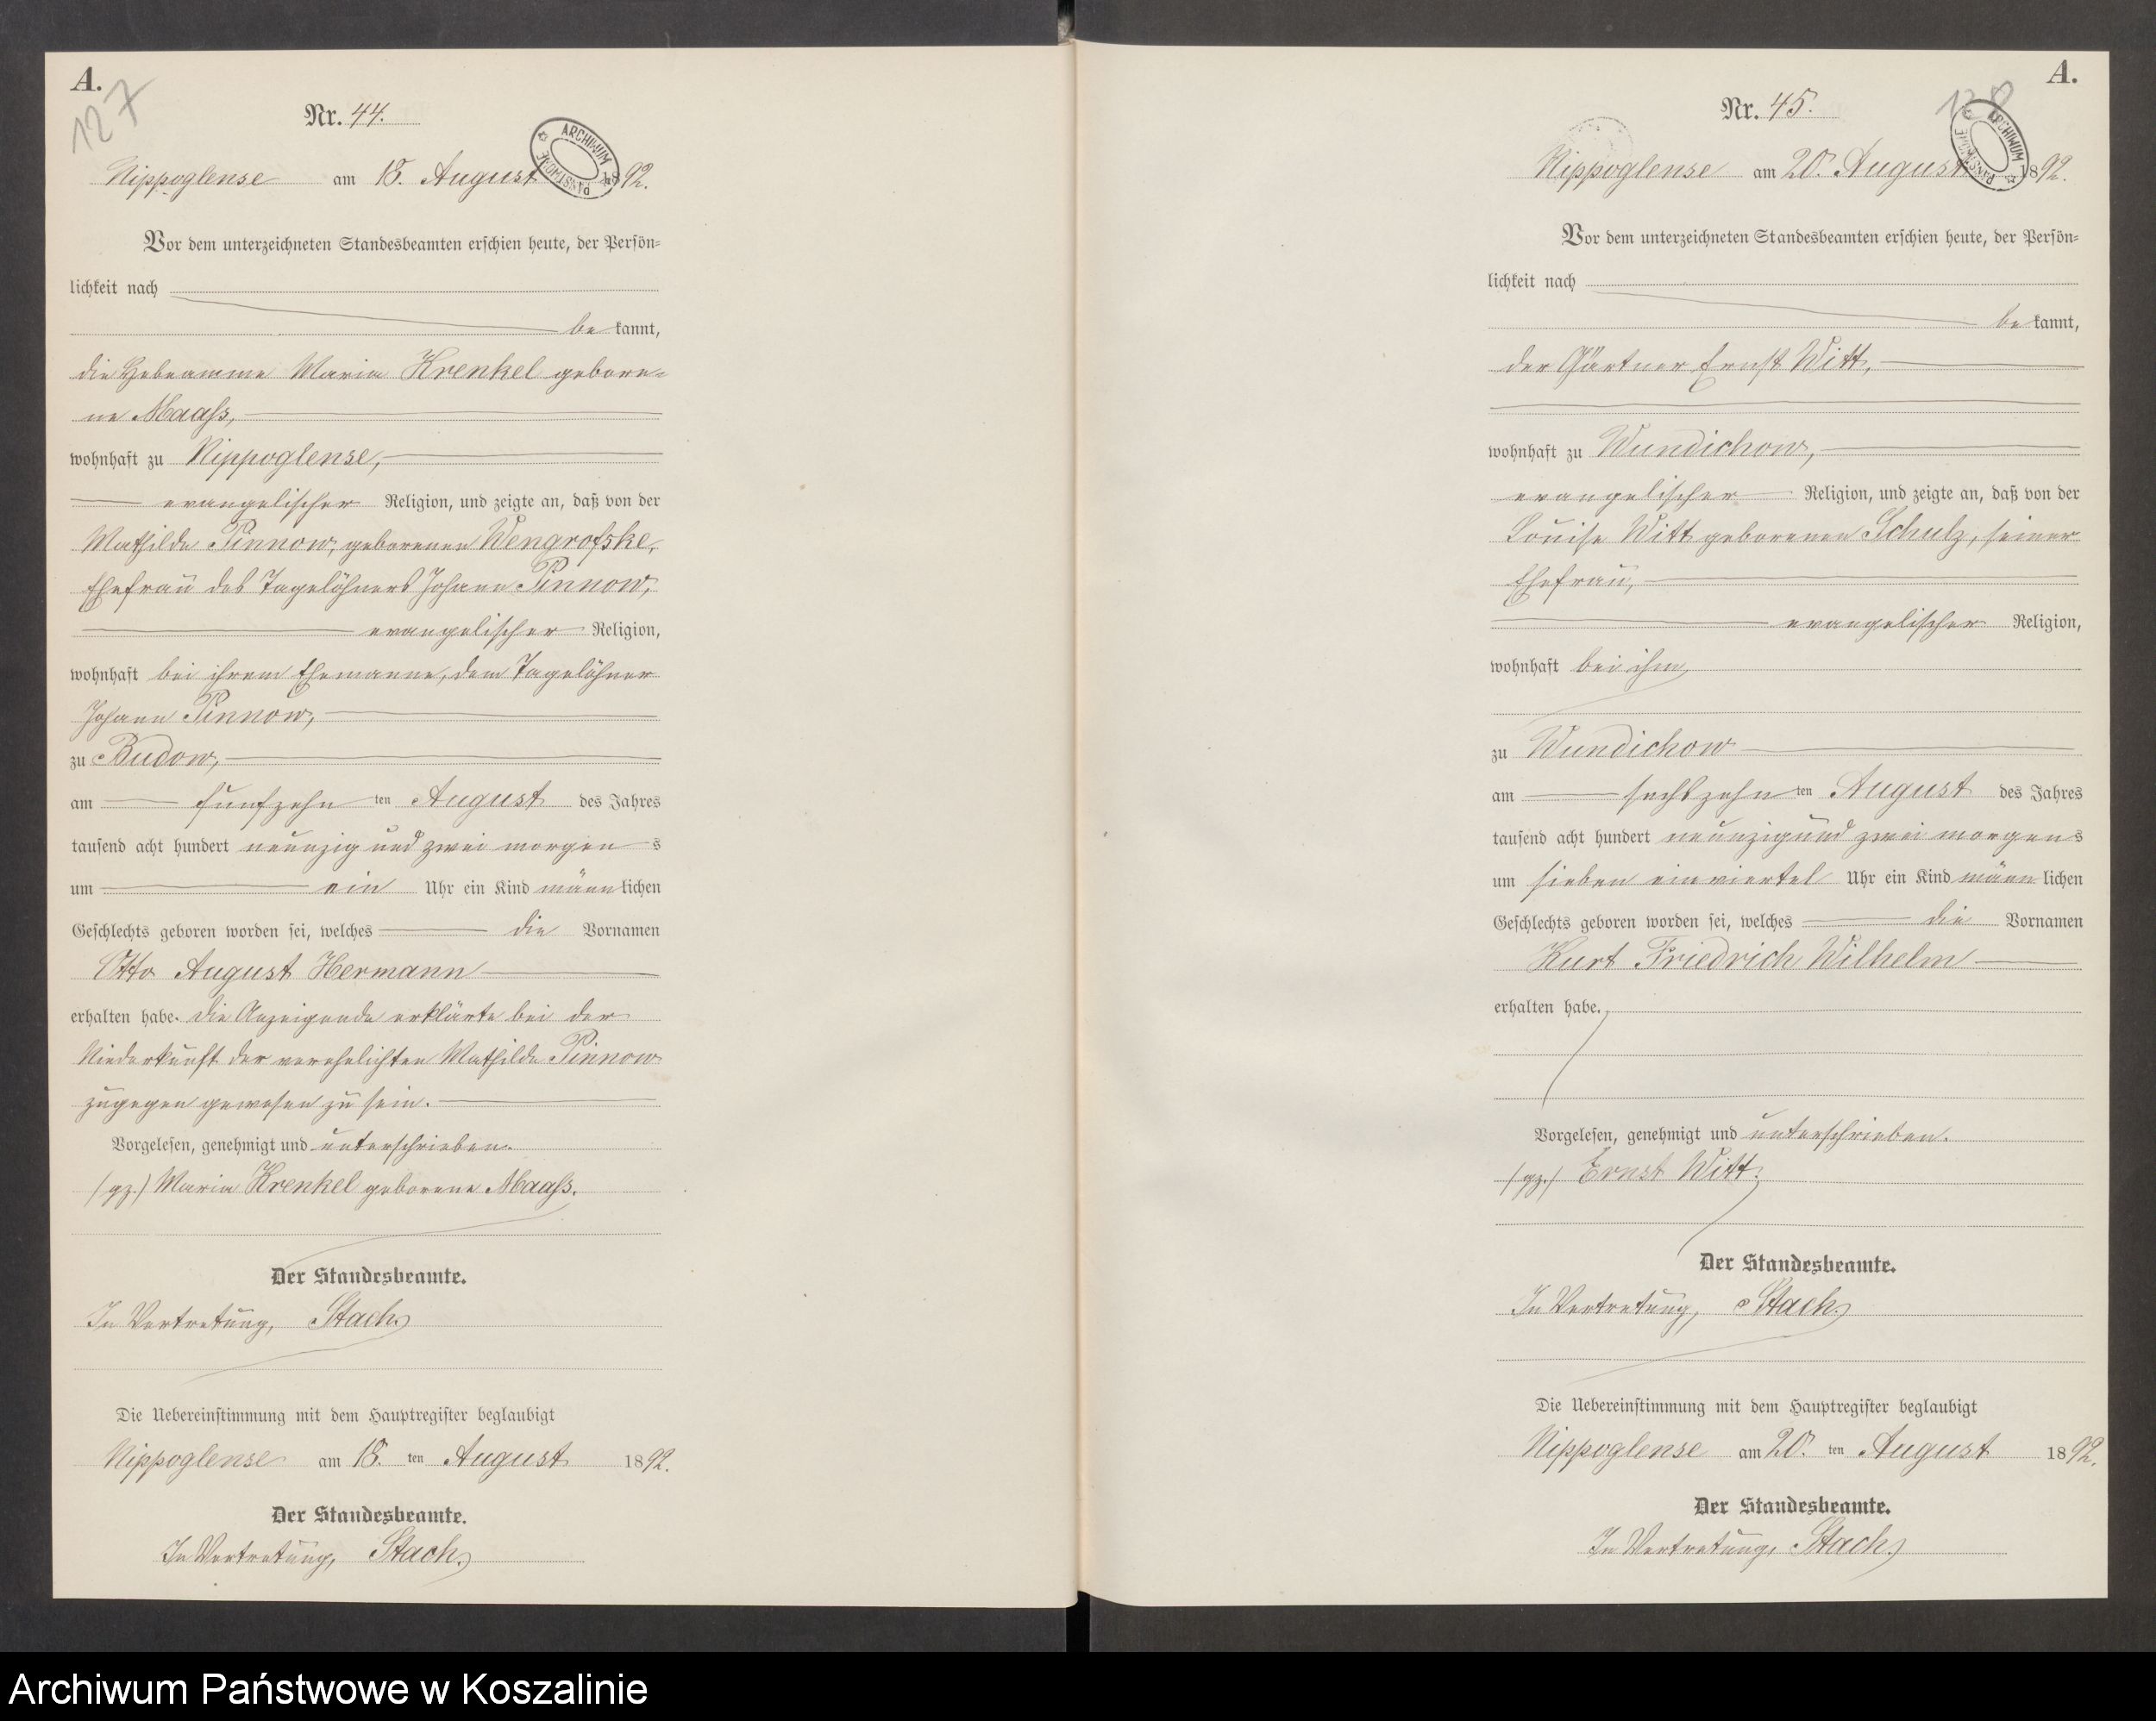 A.
127
Nr. 44.
Nippoglense am 18. August 1892.
ARCHIWUM PAŃSTWOWE
Vor dem unterzeichneten Standesbeamten erschien heute, der Persön=
lichkeit nach
be kannt,
die Hebeamme Maria Krenkel gebore=
ne Maaß,
wohnhaft zu Nippoglense,
evangelischer Religion, und zeigte an, daß von der
Mathilde Pinnow, geborenen Wengrofske,
Ehefrau des Tagelöhners Johann Pinnow,
evangelischer Religion,
wohnhaft bei ihrem Ehemanne, dem Tagelöhner
Johann Pinnow,
zu Budow,
am fünfzehn ten August des Jahres
tausend acht hundert neunzig und zwei morgen s
um ein Uhr ein Kind männ lichen
Geschlechts geboren worden sei, welches die Vornamen
Otto August Hermann
erhalten habe. Die Anzeigende erklärte bei der
Niederkunft der verehelichten Mathilde Pinnow
zugegen gewesen zu sein.
Vorgelesen, genehmigt und unterschrieben.
(gz.) Maria Krenkel geborene Maaß.
Der Standesbeamte.
In Vertretung, Stach
Die Uebereinstimmung mit dem Hauptregister beglaubigt
Nippoglense am 18. ten August 1892.
Der Standesbeamte.
In Vertretung, Stach
A.
Nr. 45.
Nippoglense am 20. August 1892.
ARCHIWUM PAŃSTWOWE
Vor dem unterzeichneten Standesbeamten erschien heute, der Persön=
lichkeit nach
be kannt,
der Gärtner Ernst Witt,
wohnhaft zu Wundichow,
evangelischer Religion, und zeigte an, daß von der
Louise Witt geborenen Schulz, seiner
Ehefrau,
evangelischer Religion,
wohnhaft bei ihm
zu Wundichow
am sechszehn ten August des Jahres
tausend acht hundert neunzig und zwei morgens
um sieben einviertel Uhr ein Kind männ lichen
Geschlechts geboren worden sei, welches die Vornamen
Kurt Friedrich Wilhelm
erhalten habe.
Vorgelesen, genehmigt und unterschrieben.
(gz.) Ernst Witt.
Der Standesbeamte.
In Vertretung, Stach
Die Uebereinstimmung mit dem Hauptregister beglaubigt
Nippoglense am 20. ten August 1892.
Der Standesbeamte.
In Vertretung, Stach
Archiwum Państwowe w Koszalinie